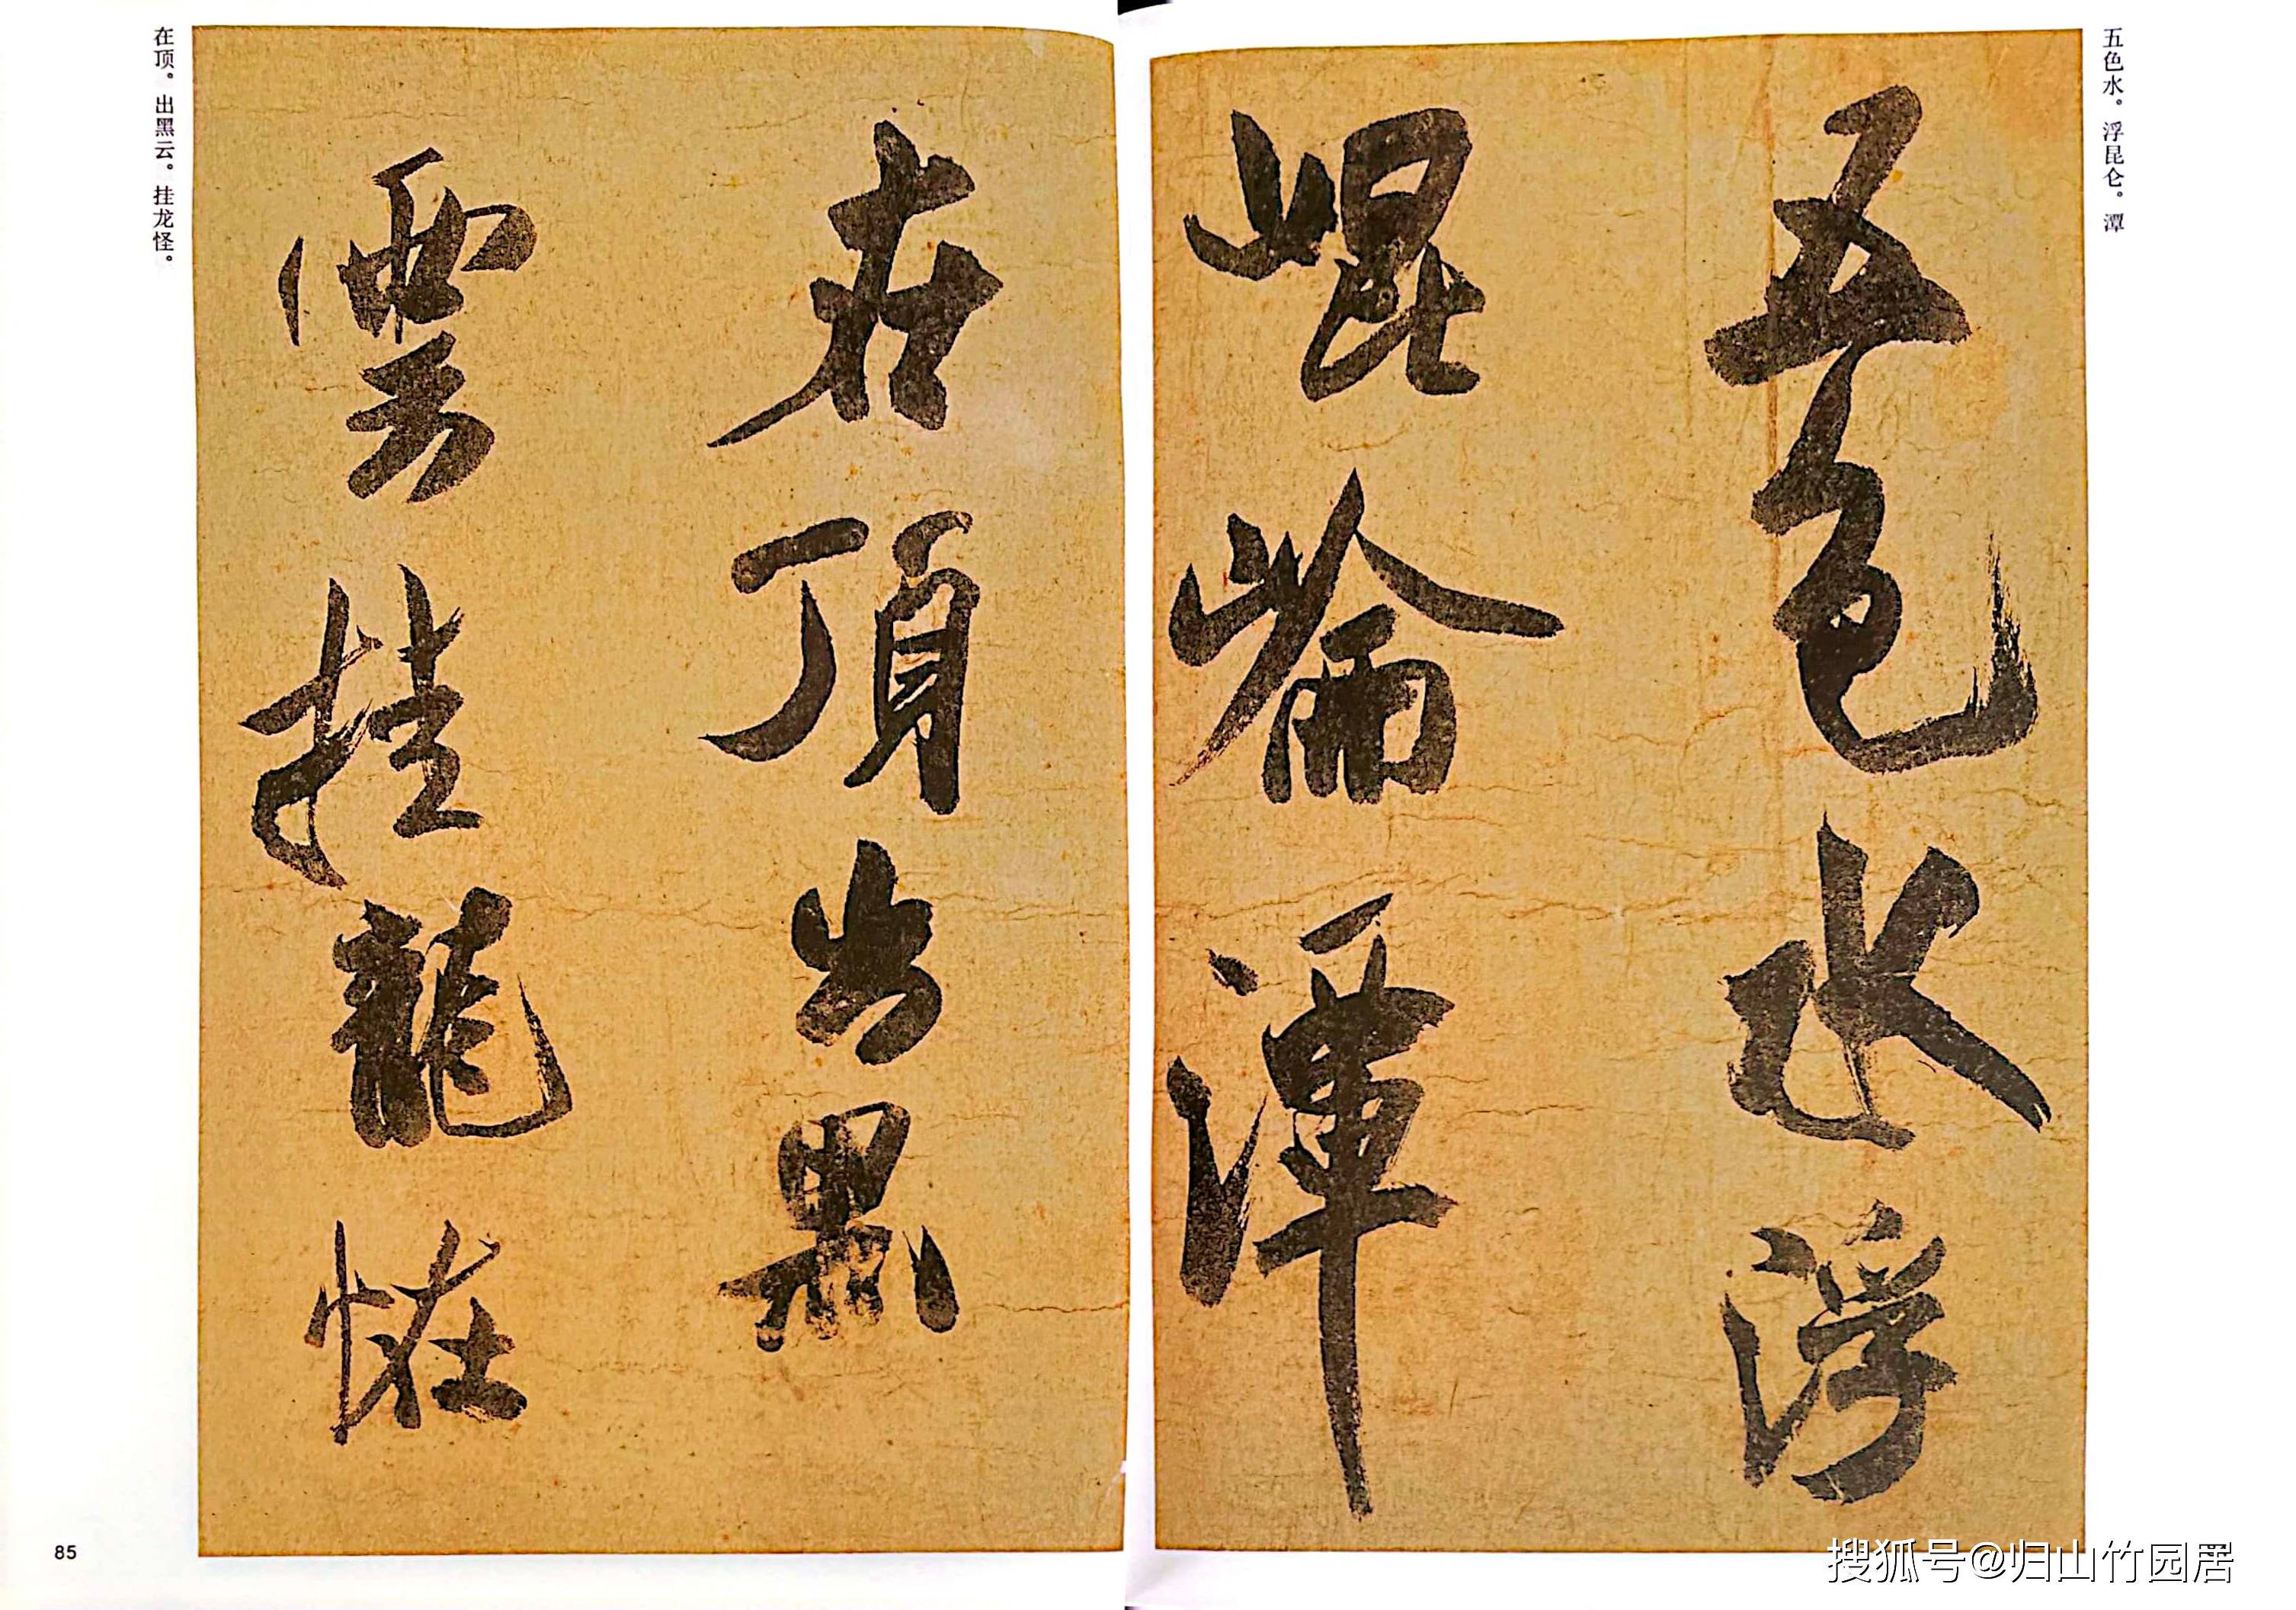 五色水。浮昆仑。潭
五色水浮
崐崘潭
在顶。出黑云。挂龙怪。
在頂出黑
雲挂龍怪
85
搜狐号@归山竹园居